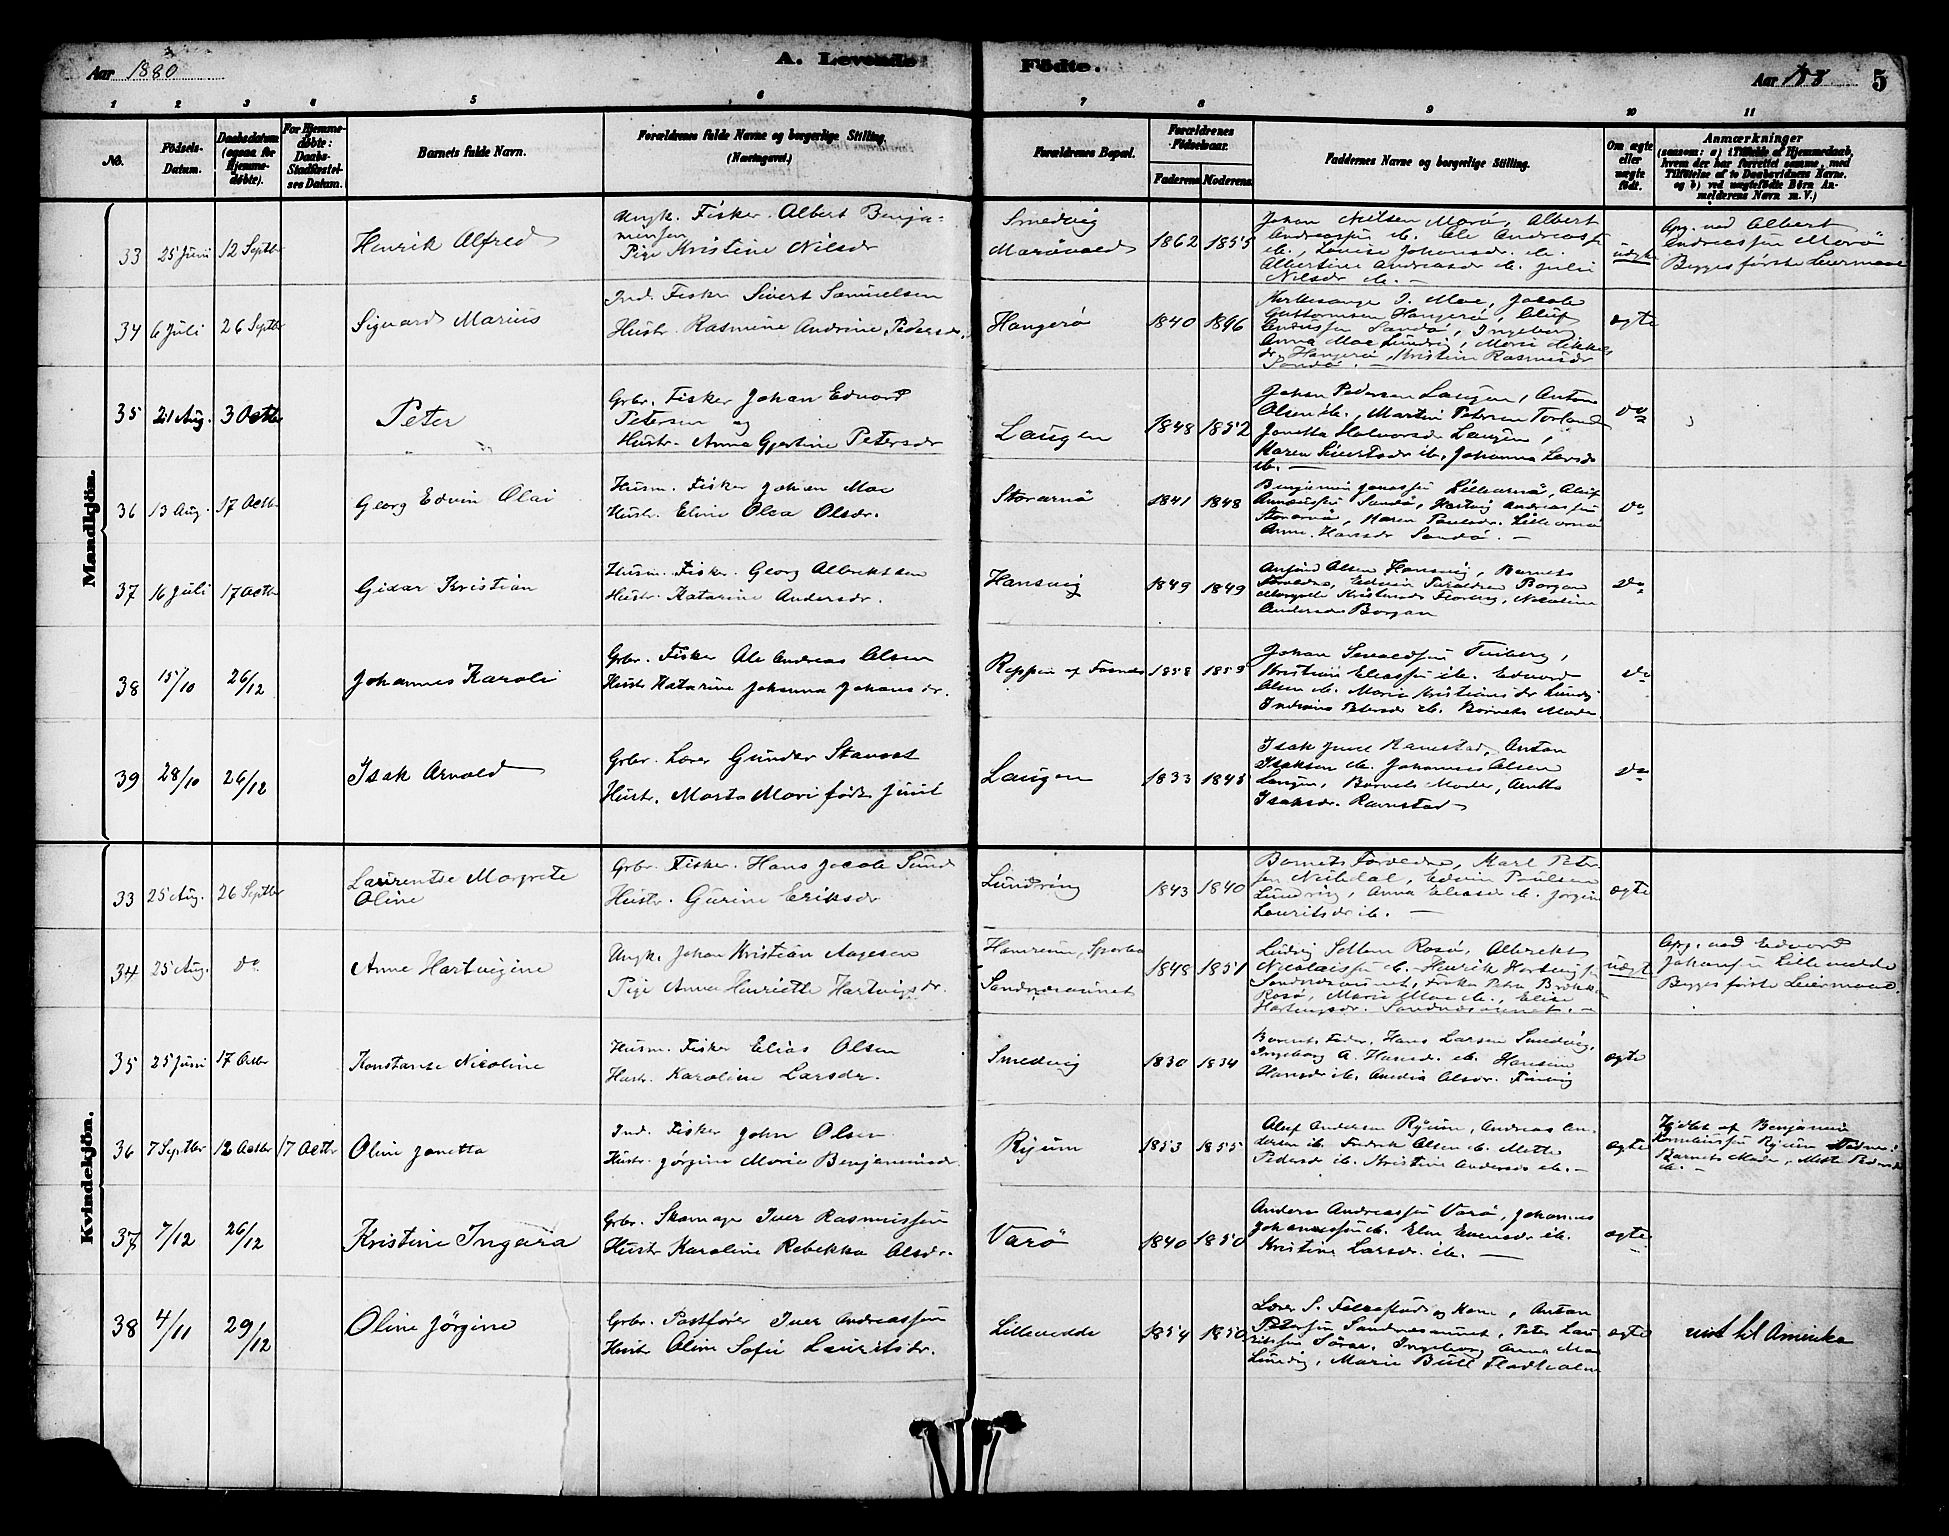 Aar 1880
A. Levende
Födte.
Aar 188
5
1 2 3 4 5 6 7 8 9 10 11
No.
Födsels-
Datum.
Daabsdatum
(ogsaa for
Hjemme-
döbte).
For Hjemme-
döbte:
Daabs-
Stadfæstel-
ses Datum.
Barnets fulde Navn.
Forældrenes fulde Navne og borgerlige Stilling.
(Næringsvei.)
Forældrenes Bopæl.
Forældrenes
Födselsaar.
Faderens Moderens
Faddernes Navne og borgerlige Stilling.
Om ægte
eller
uægte
födt.
Anmærkninger
(saasom: a) i Tilfælde af Hjemmedaab,
hvem der har forrettet samme, med
Tilföielse af to Daabsvidners Navne,
og b) ved uægtefödte Börn An-
melderens Navn m. V.)
Mandkjön.
33 25 Juni 12 Septbr Henrik Alfred
Ungk. Fisker Albert Benja-
minsen
Pige Kristine Nilsdr
Smedvig
Marövald
1862 1855
Johan Nilsen Marö, Albert
Andreassen ib. Ole Andreass
ib, Louise Johansdr. ib.
Albertine Andreasdr ib. Juli
Nilsdr ib.
uægte
Opg. ved Albert
Andreassen Marö
Begges förste Leiermaal
34 6 Juli 26 Septbr Sigvard Marius
Ind. Fisker Sivert Samuelsen
Hustr. Rasmine Andrine Pedersdr.
Hangerö
1840 1846
Kirkesanger J. Moe, Jacob
Guttormsen Hangerö, Oluf
Sandö, Ingeborg
Anna Moe Lundvig, Marie
Hangerö, Kristine Rasmusdr
Sandö.
ægte
35 21 Aug. 3 Octbr Peter
Grbr. Fisker Johan Edvard
Petersen og
Hustr. Anna Gjertine Petersdr
Laugen
1848 1852
Johan Pedersen Laugen, Anton
Olsen ib., Martin Petersen
Jonetta Halvorsdr Laugen,
Karen Sivertsdr ib. Johanna Larsdr
ib.
do
36 13 Aug. 17 Octbr Georg Edvin Olai
Husm. Fisker Johan Moe
Hustr. Eline Olea Olsdr.
Storarnö
1841 1848
Benjamin Jonassen Lillearnö, Oluf
Sandö, Hartvig Andreassen
Storarnö, Karen Paulsdr. Lillearnö
Anne Hansdr Sandö.
do
37 16 Juli 17 Octbr Gidar Kristian
Husm. Fisker Georg Albrektsen
Hustr. Katarine Andersdr.
Hansvig
1849 1849
Olsen Hansvig, Barnets
Forældre, Edvin Borgan
Kristensdr, Nicoline
Andersdr Borgan
do
38 15/10 26/12 Johannes Karoli
Grbr. Fisker Ole Andreas Olsen
Hustr Katarine Johanna Johansdr.
Reppen af Fosnæs
1858 1859
Johan
Kristian Eliassen ib. Edvard
Olsen ib. Marie Kristiansdr Lundv.
Petersdr ib. Barnets Moder.
do
39 28/10 26/12 Isak Arnold
Grbr. Lærer Gunder Stavset
Hustr. Marta Marie födt Juul
Laugen
1833 1845
Isak Juul Ramstad, Anton
Isaksen ib. Johannes Olsen
Laugen, Barnets Moder,
Isaksdr. Ramstad
do
Kvindekjön.
33 25 Aug. 26 Septbr Laurentse Margrete
Oline
Grbr. Fisker. Hans Jacob Sund
Hustr. Gurine Eriksdr
Lundring
1843 1840
Barnets Forældre, Karl Peter
sen Nubdal, Edvin Paulsen
Lundring, Anna Eliasdr ib. Jörgine
Lauritsdr ib.
ægte
34 25 Aug. do Anne Hartvigine
Ungk. Johan Kristian Aagesen
Pige Anna Henriette Hartvigsdr.
Hamrem, Sparbo
Sandnæssundet
1848 1851
Ludvig Rosö, Albrekt
Nicolaissen ib. Henrik Hartvigs
Sandnæssundet,
Rosö, Marie Moe ib., Elise
Hartvigsdr. Sandnæssundet.
uægte
Opg. ved Edvard
Johansen Lillevedde
Begges förste Leiermaal.
35 25 Juni 17 Octbr Konstanse Nicoline
Husm. Fisker Elias Olsen
Hustr. Karoline Larsdr.
Smedvig
1830 1834
Barnets Fader, Hans Larsen Smedvig,
Ingeborg A. Hansdr. ib. Hansine
Hansdr ib. Olsdr.
ægte
36 7 Septbr 12 Octbr 17 Octbr Oline Jonetta
Ind. Fisker John Olsen
Hustr. Jörgine Marie Benjaminsdr.
Ryum
1853 1855
Oluf Andersen Ryum, Andreas An-
dersen ib. Fredrik Olsen ib. Mette
Pedersdr ib. Kristine Andersdr ib.
ægte
Hjdbt af Benjamin
Korneliussen Ryum
Barnets Moder, Mette Pedersdr
ib.
37 7/12 26/12 Kristine Ingara
Grbr. Skomager Iver Rasmussen
Hustr Karoline Rebekka Olsdr.
Varö
1840 1850
Anders Andreassen Varö, Johannes
Johannessen ib. Elen Evensdr ib.
Kristine Larsdr. ib.
ægte
38 4/11 29/12 Oline Jörgine
Grbr. Postförer Iver Andreassen
Hustr Oline Sofie Lauritsdr.
Lillevedde
1854 1850
Lærer S. og Kone, Anton
Petersen Sandnæssundet, Peter Lau
ritsen Ingeborg Anna Moe
Lundvig, Marie Bull Fladholm
ægte
reist til Amerika